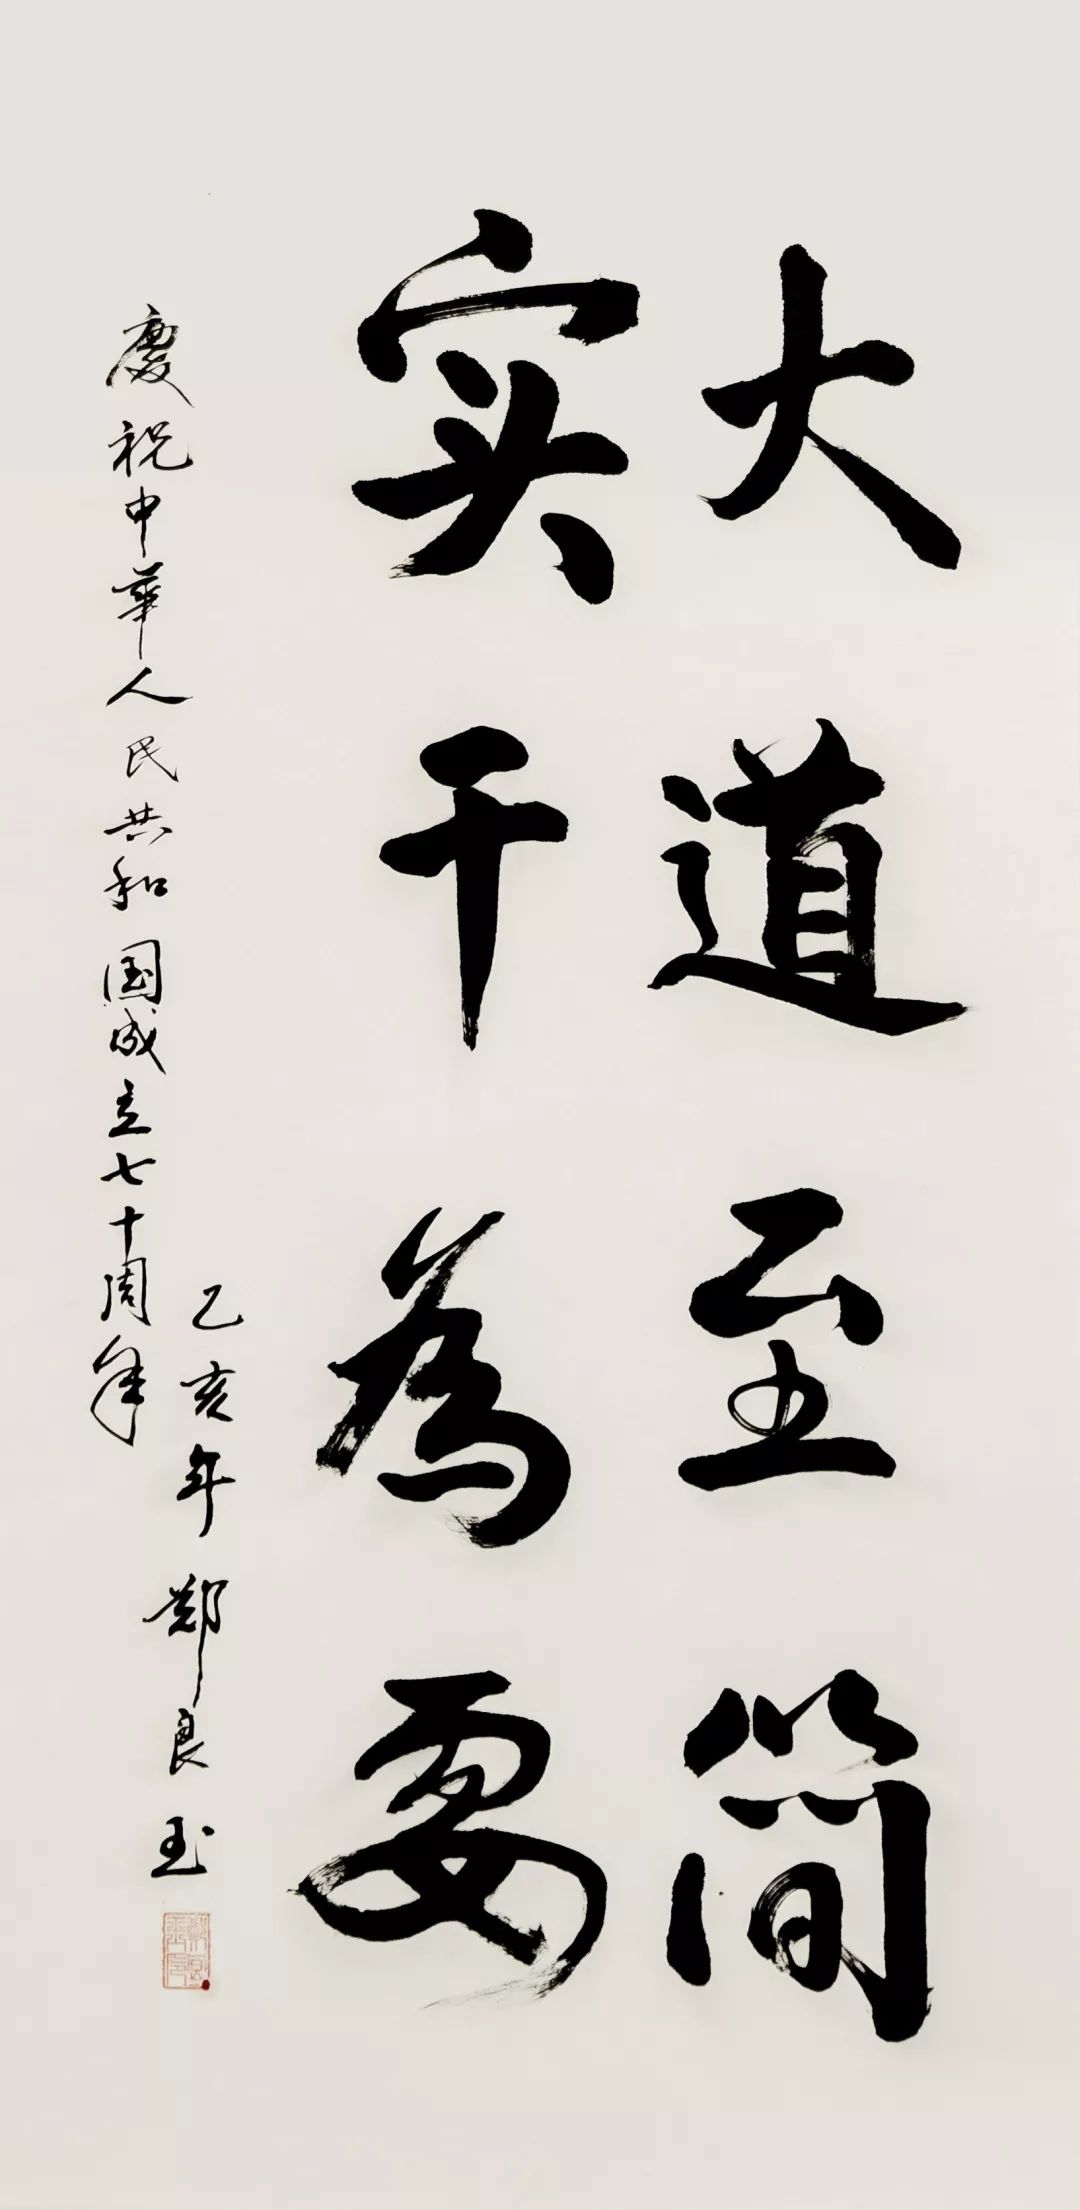 大道至简
实干为要
慶祝中華人民共和国成立七十周年
乙亥年 郑良玉